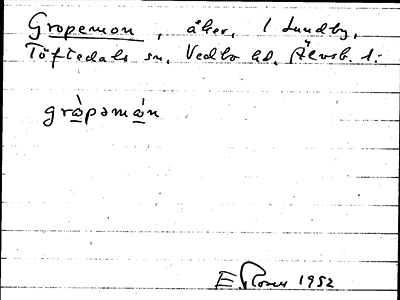 Gropemon, åker, 1 Lundby,
Töftedals sn. Vedbo hd. Älvsb. l.
gròpəmán
E 1952